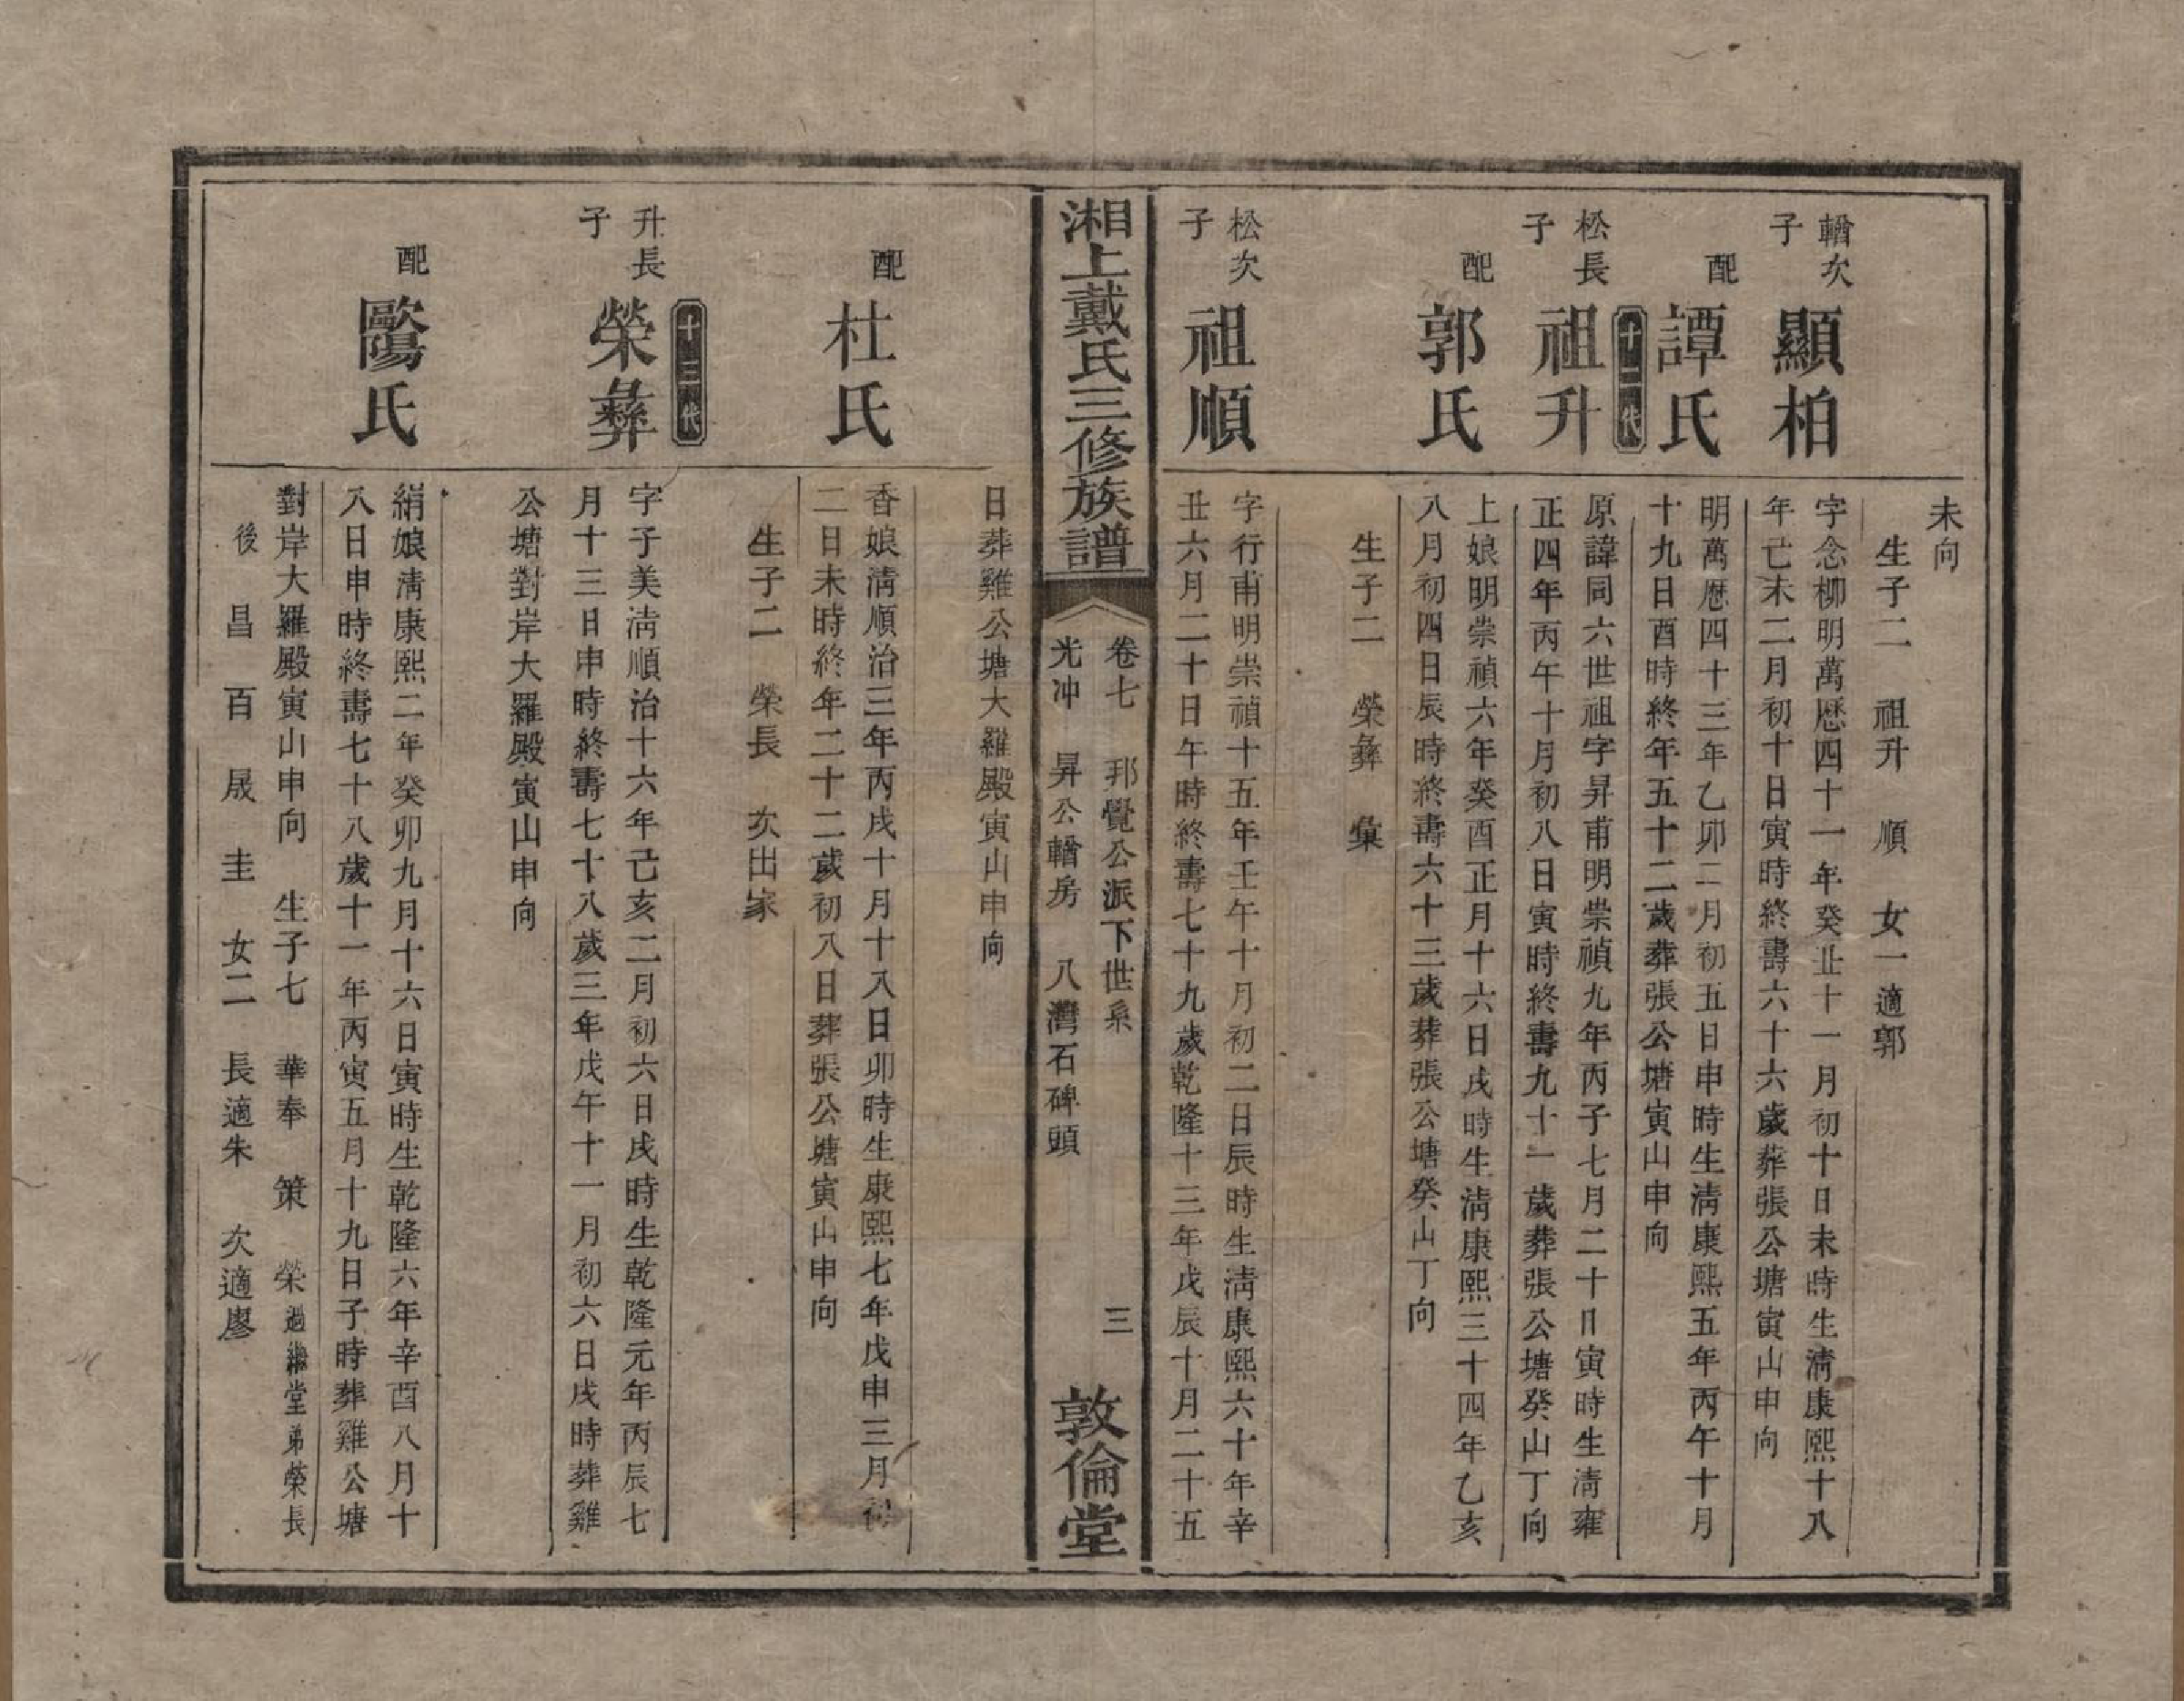 未向
生子二　祖升　順　女一適郭
輶次子
顯柏
字念柳明萬厯四十一年癸丑十一月初十日未時生淸康熙十八
年己未二月初十日寅時終壽六十六歲葬張公塘寅山申向
配
譚氏
明萬厯四十三年乙卯二月初五日申時生淸康熙五年丙午十月
十九日酉時終年五十二歲葬張公塘寅山申向
十二代
松長子
祖升
原諱同六世祖字昇甫明崇禎九年丙子七月二十日寅時生淸雍
正四年丙午十月初八日寅時終壽九十一歲葬張公塘癸山丁向
配
郭氏
上娘明崇禎六年癸酉正月十六日戌時生淸康熙三十四年乙亥
八月初四日辰時終壽六十三歲葬張公塘癸山丁向
生子二　榮彝　彙
松次子
祖順
字行甫明崇禎十五年壬午十月初二日辰時生淸康熙六十年辛
丑六月二十日午時終壽七十九歲乾隆十三年戊辰十月二十五
湘上戴氏三修族譜
卷七　邦覺公派下世系　三
光冲　昇公輶房　八灣石碑頭
敦倫堂
日葬雞公塘大羅殿寅山申向
配
杜氏
香娘淸順治三年丙戌十月十八日卯時生康熙七年戊申三月初
二日未時終年二十二歲初八日葬張公塘寅山申向
生子二　榮長　次出家
十三代
升長子
榮彝
字子美淸順治十六年己亥二月初六日戌時生乾隆元年丙辰七
月十三日申時終壽七十八歲三年戊午十一月初六日戌時葬雞
公塘對岸大羅殿寅山申向
配
歐陽氏
絹娘淸康熙二年癸卯九月十六日寅時生乾隆六年辛酉八月十
八日申時終壽七十八歲十一年丙寅五月十九日子時葬雞公塘
對岸大羅殿寅山申向　生子七　華奉　策　榮過繼堂弟榮長
後　昌　百　晟　圭　女二　長適朱　次適廖